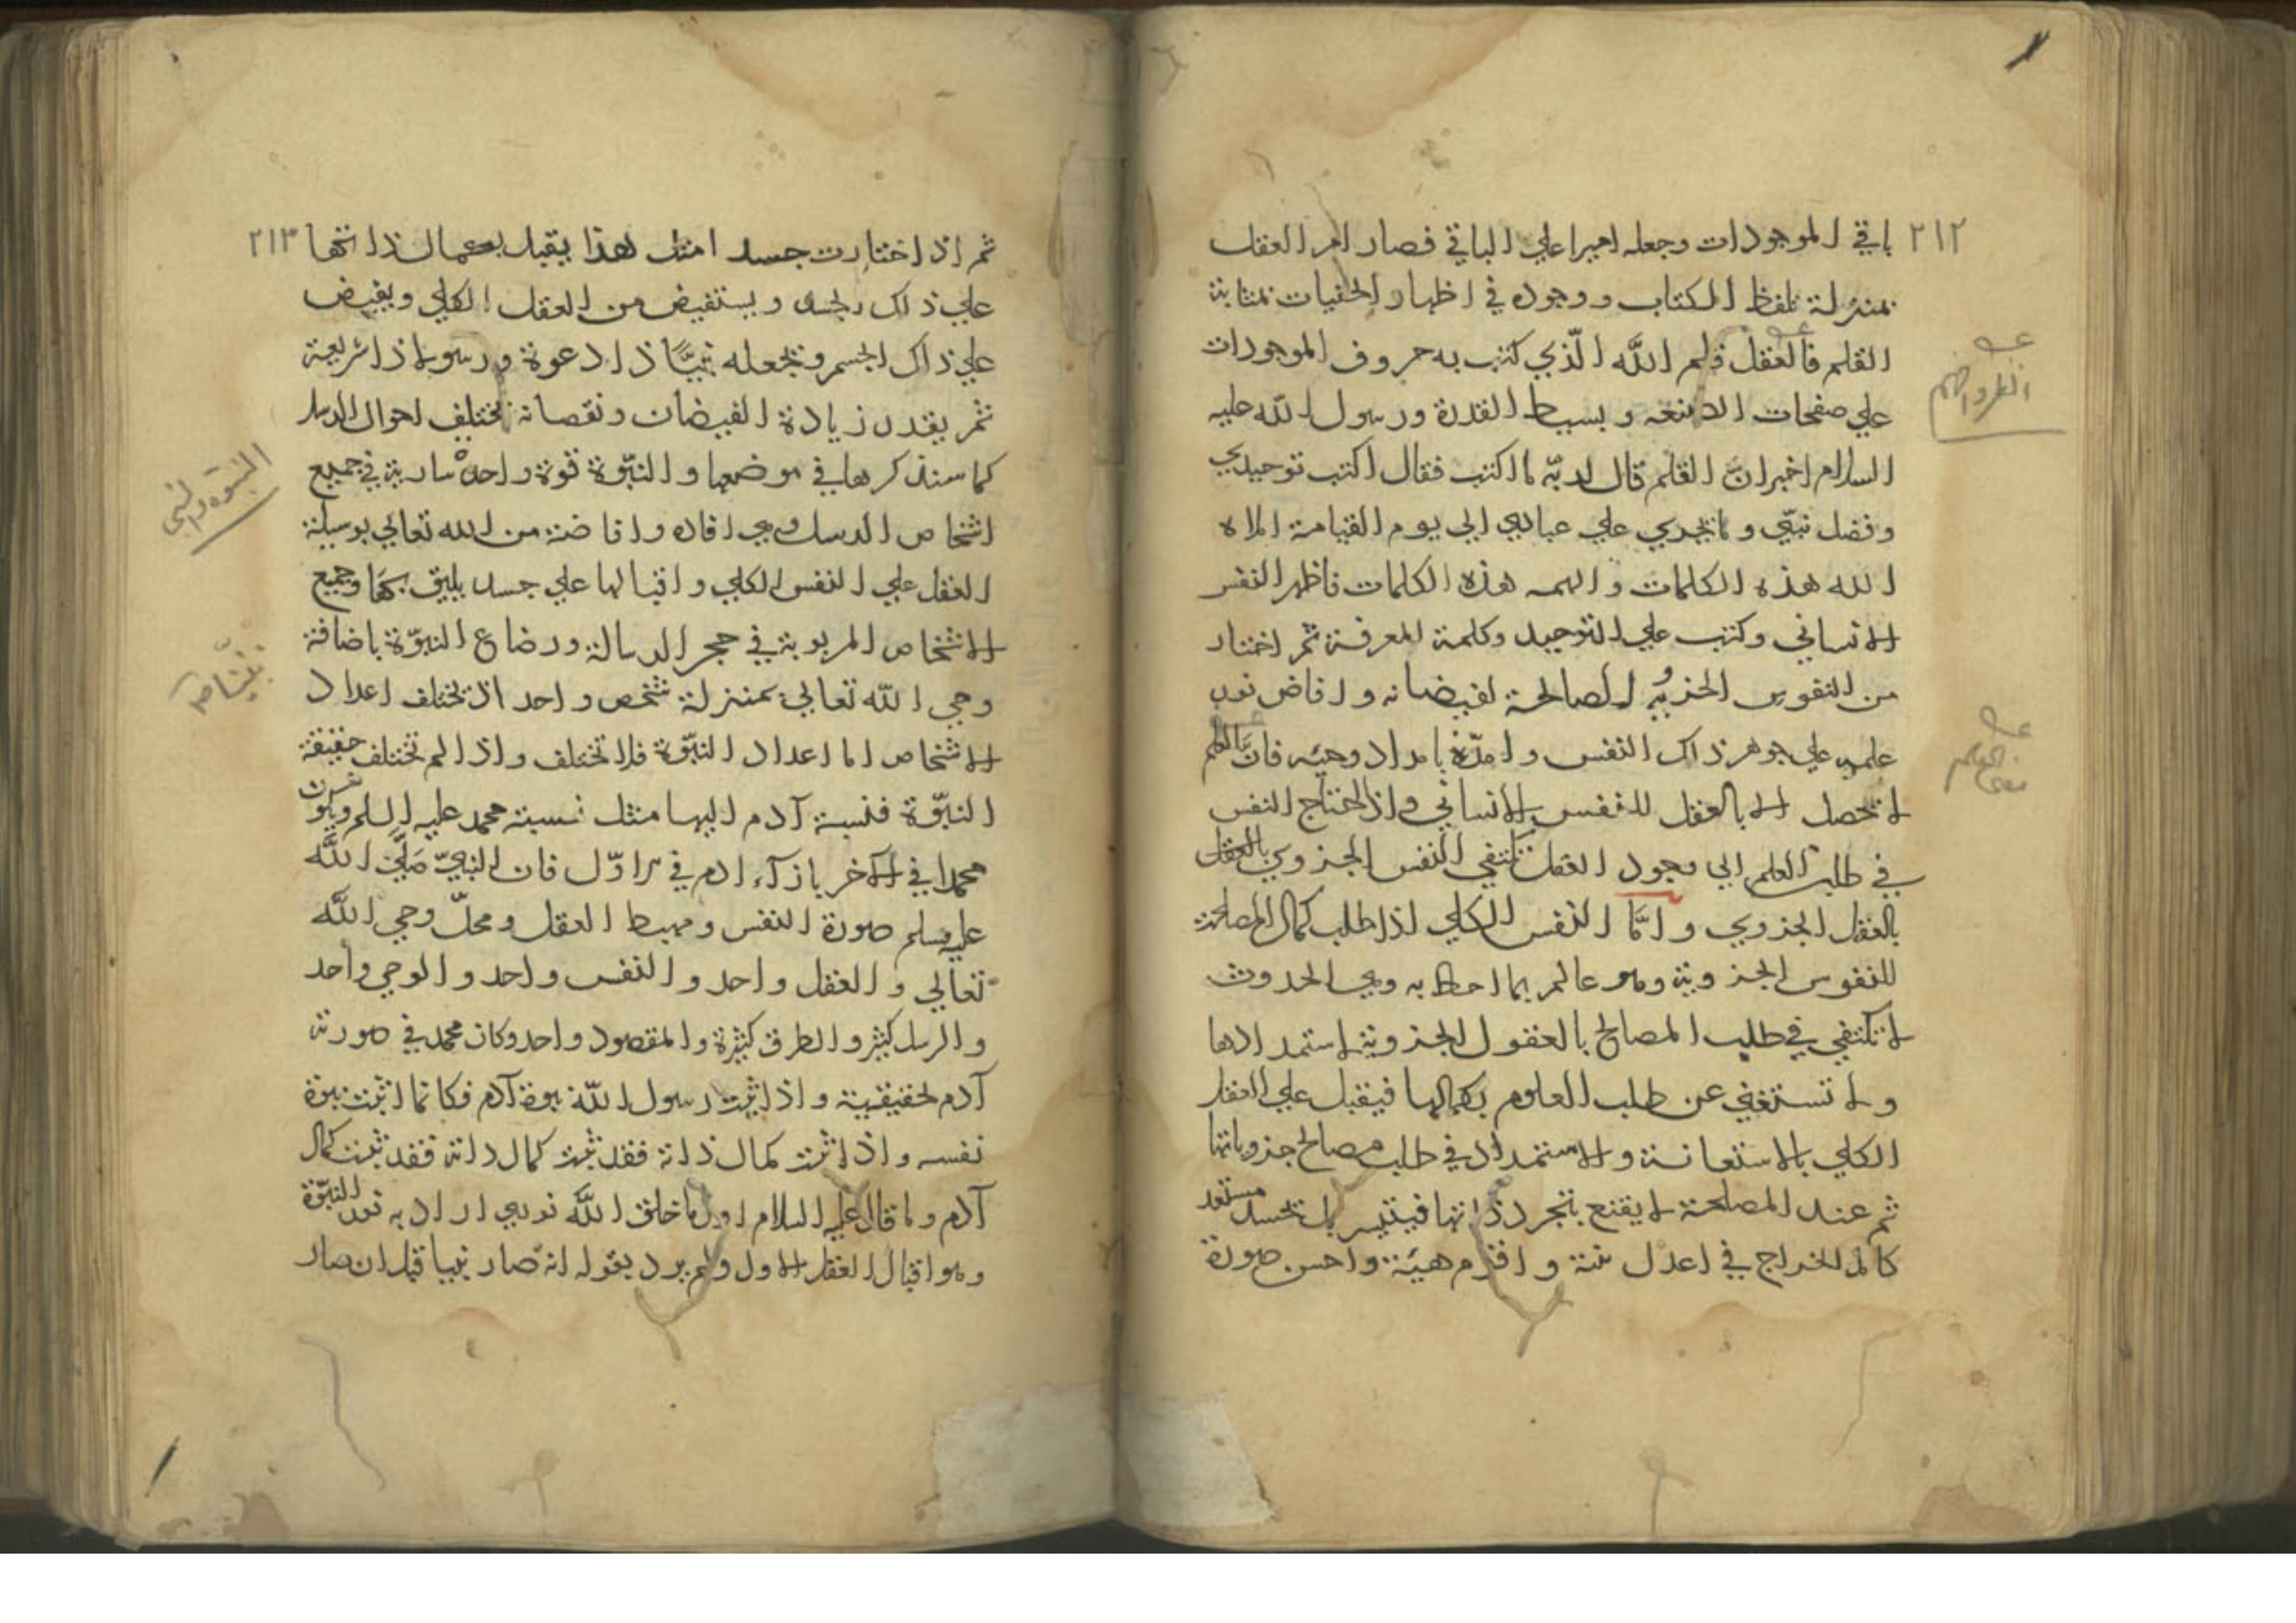 ٢١٢
باقي الموجودات وجعله اميرا علي الباقي فصار امر العقل
بمنزلة تلفظ الكتاب ووجوده في اظهار الخفيات بمثابة
القلم فالعقل قلم الله الذي كتب به حروف الموجودات
علي صفحات وبسيط القدرة ورسول الله عليه
السلام اخبر انّ القلم قال لربّه ما اكتب فقال اكتب توحيدي
وفضل نبيّي وما يجري علي عبادي الي يوم القيامة
الله هذه الكلمات والهمه هذه الكلمات فاظهر النفس
الانساني وكتب علي التوحيد وكلمة المعرفة ثم اختار
من النفوس الجزويه الصالحة لفيضانه وافاض نور
علمه علي جوهر ذاك النفس وامدّه بامداد وحيه فانّ العلم
لا تحصل الا بالعقل للنفس الانساني واذ احتاج النفس
في طلب العلم الي وجود العقل تكتفي النفس الجزوي بالعقل
بالعقل الجزوي وامّا النفس الكلي اذا طلب كمال المصلحة
للنفوس الجزوية وهو عالم بما احاط به وهي الحدوث
لا تكتفي في طلب المصالح بالعقول الجزوية لاستمدادها
ولا تستغني عن طلب العلوم بكمالها فيقبل علي العقل
الكلي بالاستعانة والاستمداد في طلب مصالح جزوياتها
ثم عند المصلحة لا يقنع بتجرد ذاتها بجسد مستعد
في اعدل واقوم هيئة واحسن صورة
٢١٣
ثم اذ اختارت جسدا مثل هذا يقبل بكمال ذاتها
علي ذاك الجسد ويستفيض من العقل الكلي ويفيض
علي ذاك الجسم وتجعله نبيًّا ذا دعوة ورسولا ذا شريعة
ثم بقدر زيادة الفيضان ونقصانه تختلف احوال الرسل
كما سنذكرها في موضعها والنبّوة قوة واحدة سارية في جميع
اشخاص الرسل وهي افادة وافاضة من الله تعالي بوسيلة
العقل علي النفس الكلي واقبالها علي جسد يليق بها وجميع
الاشخاص المربوبة في حجر الرسالة ورضاع النبوّة باضافة
وحي الله تعالي بمنزلة شخص واحد اذ تختلف اعداد
الاشخاص اما اعداد النبّوة فلا تختلف واذا لم تختلف حقيقة
النبّوة فنسبة آدم اليها مثل نسبة محمد عليه السلم ويكون
محمدا في الآخر بازآء ادم في الاوّل فان النبيّ صلّي الله
عليه وسلم صورة النفس ومهبط العقل ومحلّ وحي الله
تعالي والعقل واحد والنفس واحد والوحي واحد
والرسل كثير والطرق كثيرة والمقصود واحد وكان محمد في صورته
آدم لحقيقية واذا اثبت رسول الله نبوة آدم فكانما اثبت نبوة
نفسه واذا اثبت كمال ذاته فقد ثبت كمال ذاته فقد ثبت كمال
آدم وما قال عليه السلام اول ما خلق الله نوري اراد به نور النبّوة
وهو اقبال العقل الاول ولم يرد بقوله انه صار نبيا قبل ان صار
النبوة والنبي